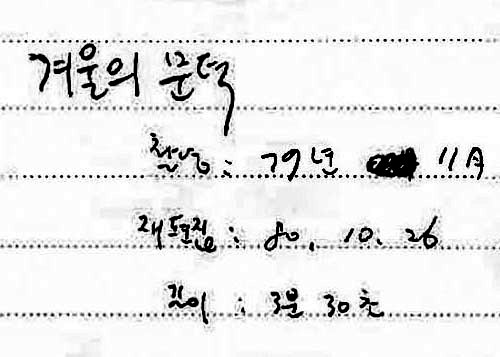 겨울의 문턱
촬영 : 79년 11月
재편집 : 80. 10. 26
길이 : 3분 30초